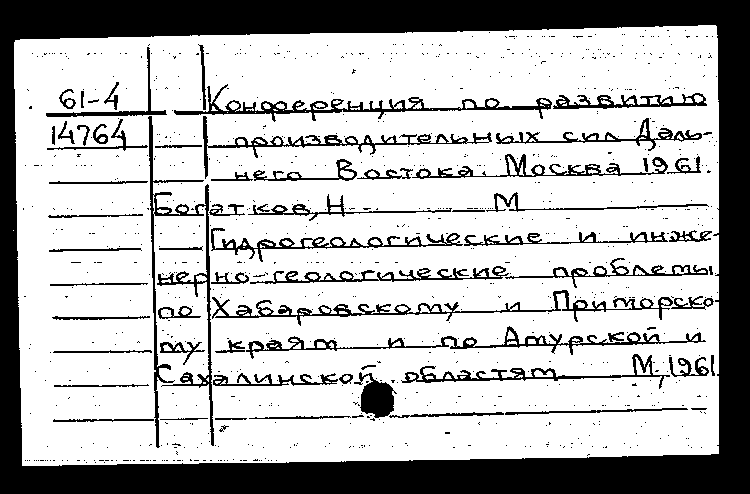 61-4 Конференция по развитию
14764 производительных сил Даль-
него Востока. Москва 1961.
Богатков, Н М
Гидрогеологические и инже-
нерно-геологические проблемы
по Хабаровскому и Приморско-
му краям и по Амурской и
Сахалинской областям М, 1961